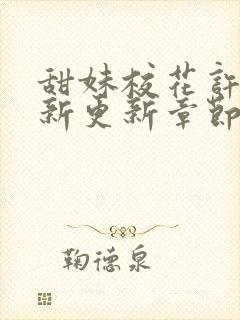 甜妹校花許
新更新章節
鞠德泉